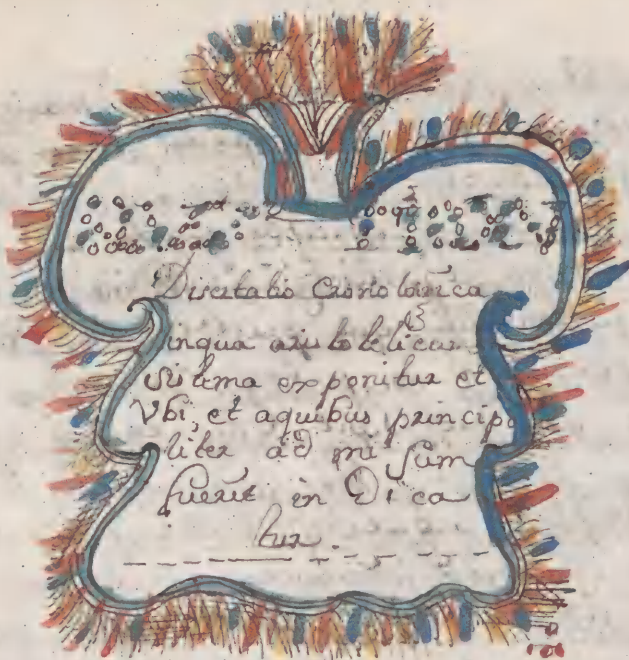 Disertatio Cronologica
inqua aristotelicum
sistema exponitur et
Vbi, et aquibus principa
liter ad mi sum
fuerit in Dica
tur.